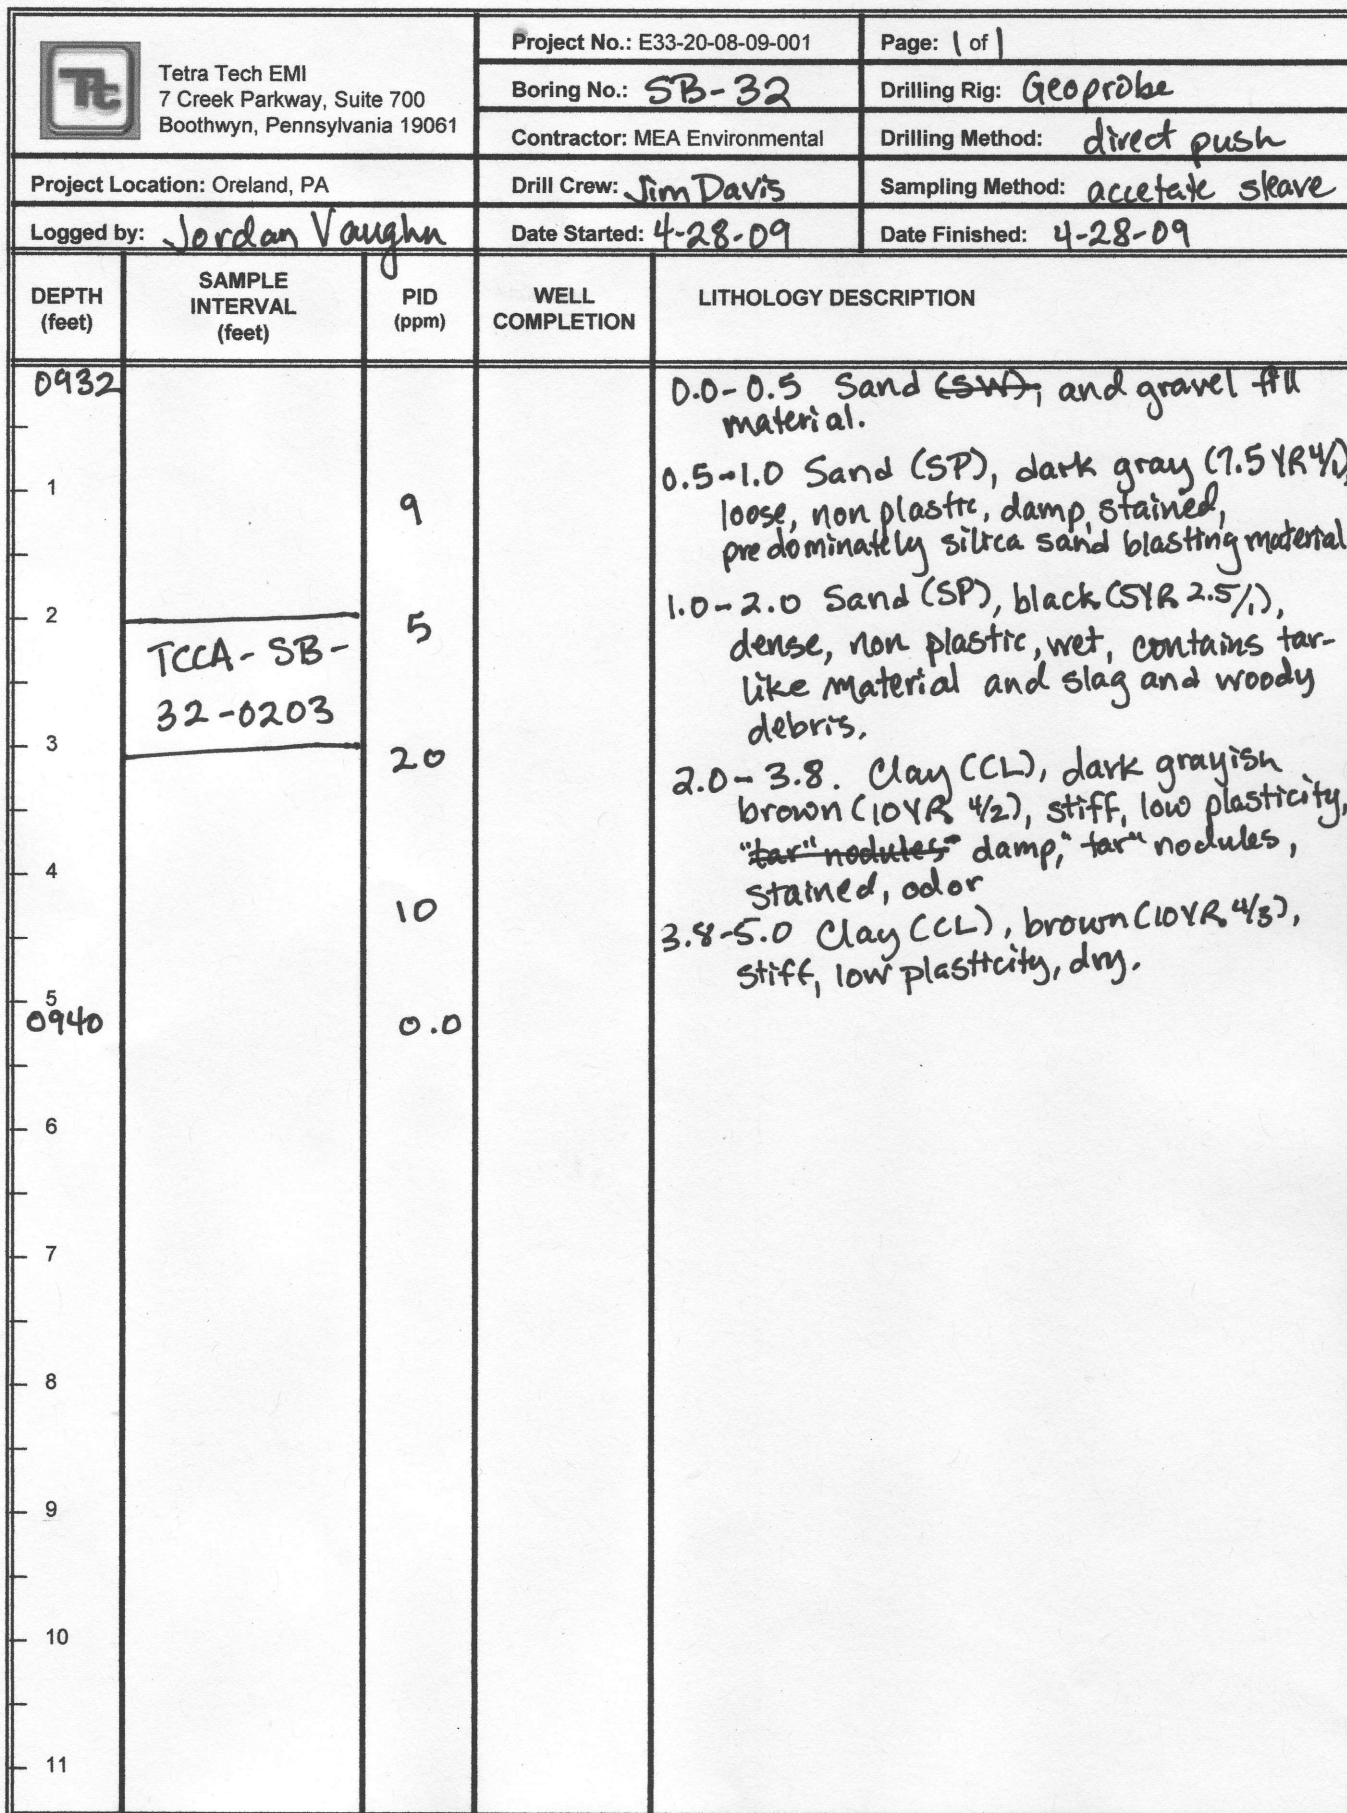 Tt
Tetra Tech EMI
7 Creek Parkway, Suite 700
Boothwyn, Pennsylvania 19061
Project No.: E33-20-08-09-001
Page: 1 of 1
Boring No.: SB-32
Drilling Rig: Geoprobe
Contractor: MEA Environmental
Drilling Method: direct push
Project Location: Oreland, PA
Drill Crew: Jim Davis
Sampling Method: accetate sleave
Logged by: Jordan Vaughn
Date Started: 4-28-09
Date Finished: 4-28-09
DEPTH
(feet)
SAMPLE
INTERVAL
(feet)
PID
(ppm)
WELL
COMPLETION
LITHOLOGY DESCRIPTION
0932
0.0-0.5 Sand (SW), and gravel fill
material.
0.5-1.0 Sand (SP), dark gray (7.5 YR 4/1),
1
9
loose, non plastic, damp, stained,
predominately silica sand blasting material
1.0-2.0 Sand (SP), black (5YR 2.5/1),
2
5
dense, non plastic, wet, contains tar-
TCCA-SB-
like material and slag and woody
32-0203
debris.
3
20
2.0-3.8. Clay (CL), dark grayish
brown (10YR 4/2), stiff, low plasticity,
"tar" nodules" damp, "tar" nodules,
4
stained, odor
10
3.8-5.0 Clay (CL), brown (10YR 4/3),
stiff, low plasticity, dry.
5
0940
0.0
6
7
8
9
10
11